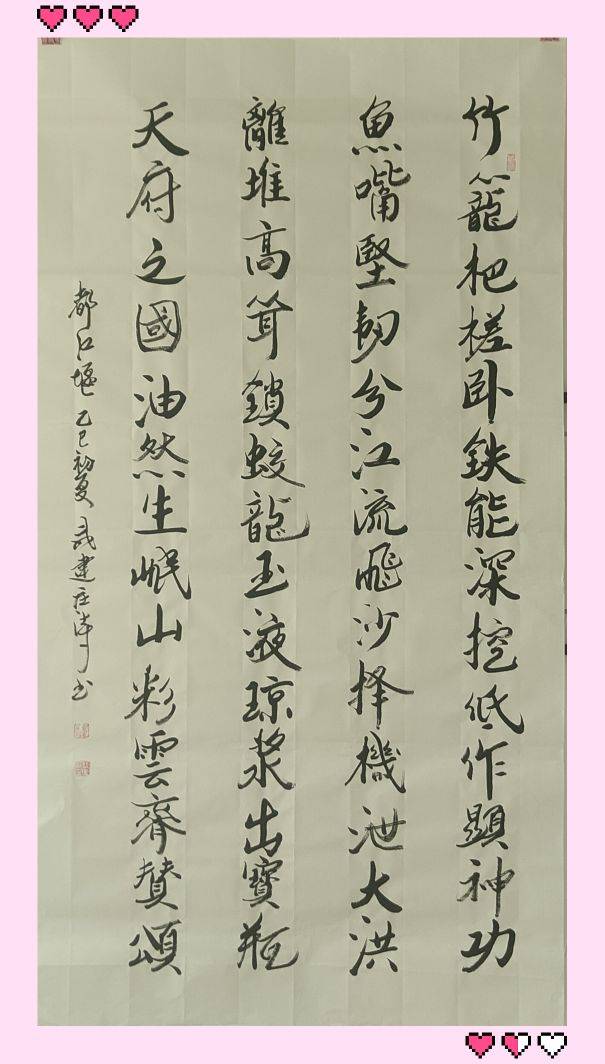 竹籠杩槎卧鉄能深挖低作顯神功
魚嘴堅韌分江流飛沙择機泄大洪
離堆高耸鎖蛟龍玉液琼浆出寶瓶
天府之國油然生岷山彩雲齊贊頌
都江堰 乙巳初夏 建 书